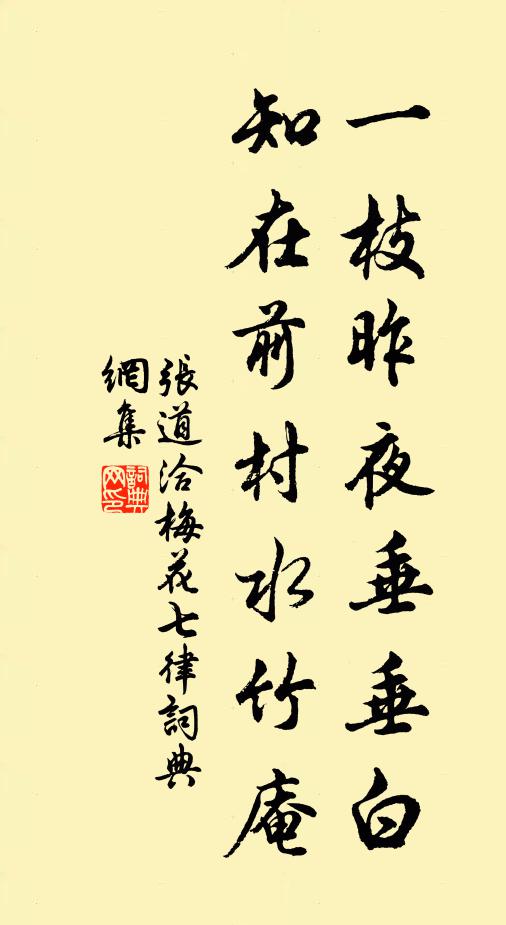 一枝昨夜垂垂白
知在前村水竹庵
張道洽梅花七律詞典
網集
詞典網印